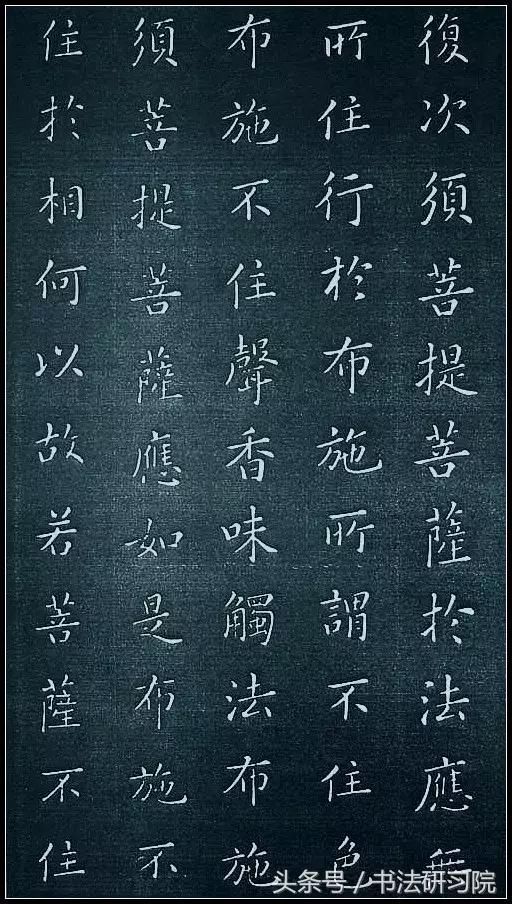 復次須菩提菩薩於法應無
所住行於布施所謂不住色
布施不住聲香味觸法布施
須菩提菩薩應如是布施不
住於相何以故若菩薩不住
头条号 / 书法研习院